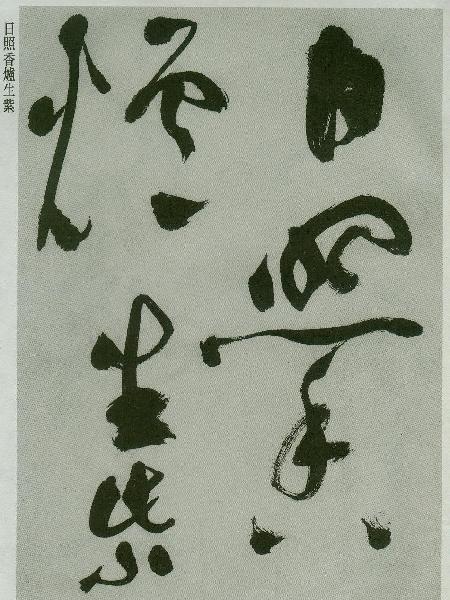 日照香
爐生紫
日照香爐生紫